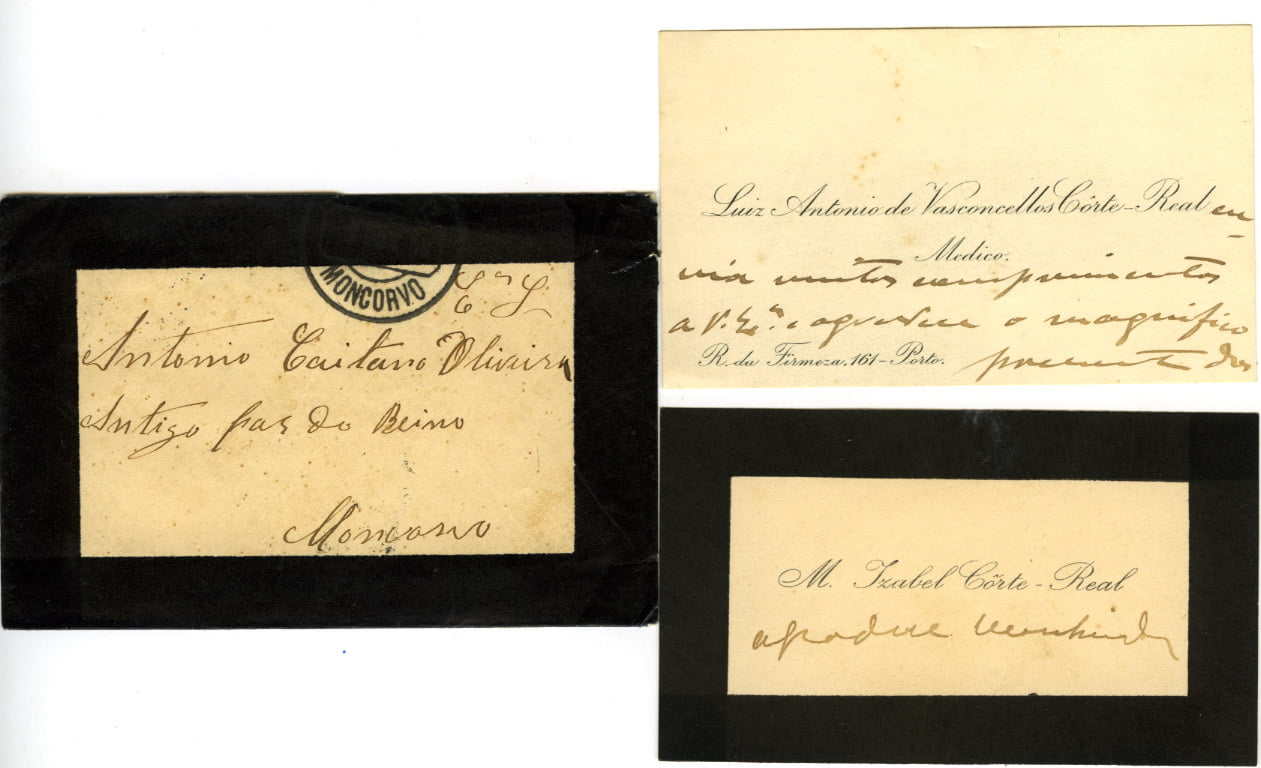 MONCORVO
Exmo Sr
Antonio Caitano Oliveira
Antigo par do Reino
Moncorvo
Luiz Antonio de Vasconcellos Côrte-Real en-
Medico.
via muitos comprimentos
a V. Exa. e agradece o magnifico
R. da Firmeza, 161-Porto.
presente dos
M. Izabel Côrte-Real
agradece